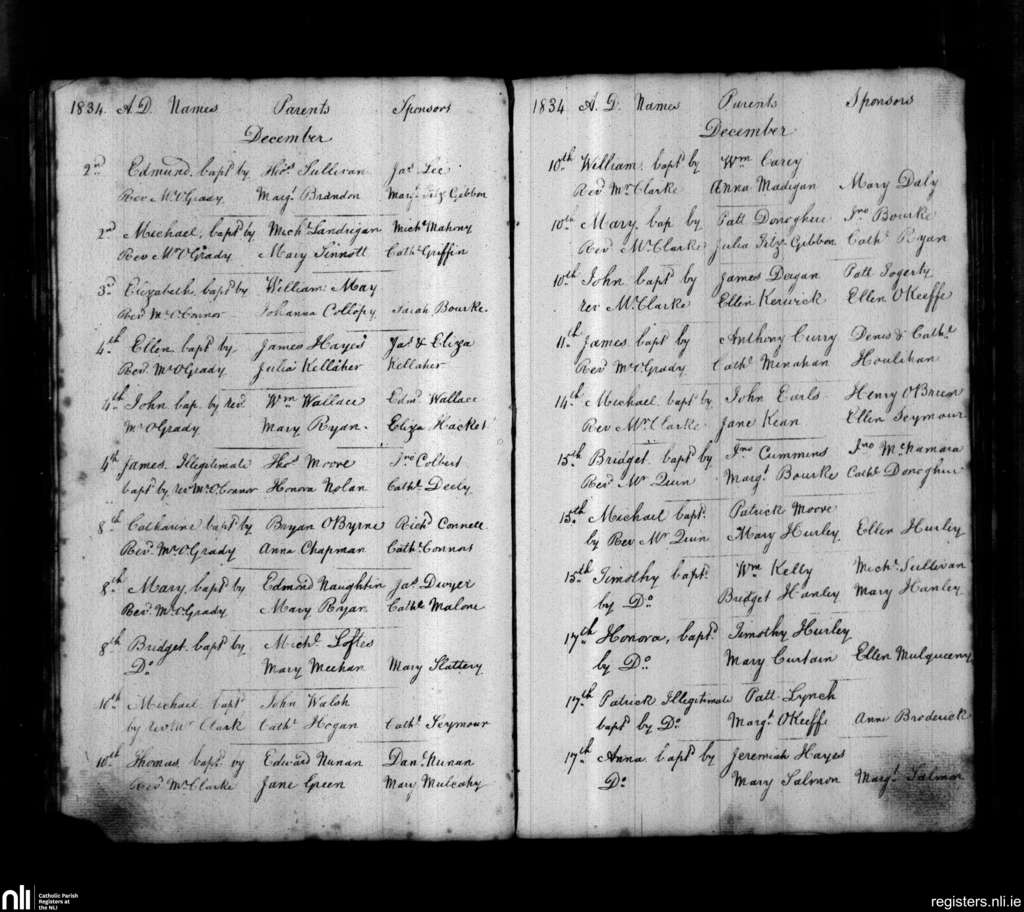 1834. A.D. Names Parents Sponsors
December
2nd Edmund bapt by Thos Sullivan Jas Lee
Rev Mr O'Grady Margt Brandon Mary Fitz Gibbon
2nd Michael, bapt by Michl Landrigan Michl Mahony
Rev Mr O'Grady Mary Sinnott Cathe Griffin
3d Elizabeth bapt by William May
Revd Mr O'Connor Johanna Collopy Sarah Bourke.
4th Ellen bapt by James Hayes Jas & Eliza
Revd Mr O'Grady Julia Kelliher Kellaher
4th John bap. by revd Wm Wallace Edmd Wallace
Mr O'Grady Mary Ryan. Eliza Hacket
4th James Illegitimate Thos Moore Jno Colbert
bapt by revd Mr O'Connor Honora Nolan Cathe Deely
8th Catharine bapt by Bryan O'Byrne Richd Connell
Revd Mr O'Grady Anna Chapman Cathe Connors
8th Mary bapt by Edmond Naughtin Jas Dwyer
Revd Mr O'Grady Mary Ryan Cathe Malone
8th Bridget bapt by Michl Loftes
Do Mary Meehan Mary Slattery
10th Michael bapt John Walsh
by revd Mr Clark Cathe Hogan Cathe Seymour
10th Thomas bapt by Edward Nunan Danl Nunan
Revd Mr Clarke Jane Green Mary Mulcahy
1834 A.D. Names Parents Sponsors
December
10th William bapt by Wm Carey
Revd Mr Clarke Anna Madigan Mary Daly
10th Mary bap by Patt Donoghue Jno Bourke
Rev Mr Clarke Julia Fitz Gibbon Cathe Ryan
10th John bapt by James Deegan Patt Fogerty
rev Mr Clarke Ellen Kerwick Ellen O'Keeffe
11th James bapt by Anthony Curry Denis & Cathe
Revd Mr O'Grady Cathe Minahan Houlihan
14th Michael bapt by John Earls Henry O'Brien
Rev Mr Clarke Jane Kean Ellen Seymour
15th Bridget bapt by Jno Cummins Jno McNamara
Revd Mr Quin Margt Bourke Cathe Donoghue
15th Michael bapt Patrick Moore
by Rev Mr Quin Mary Hurley Ellen Hurley
15th Timothy bapt Wm Kelly Michl Sullivan
by Do Bridget Hanley Mary Hanley
17th Honora, bapt Timothy Hurley
by Do Mary Curtain Ellen Mulqueeny
17th Patrick Illegitimate Patt Lynch
bapt by Do Margt O'Keeffe Anne Broderick
17th Anna bapt by Jeremiah Hayes
Do Mary Salmon Margt Salmon
nli
Catholic Parish
Registers at
the NLI
registers.nli.ie